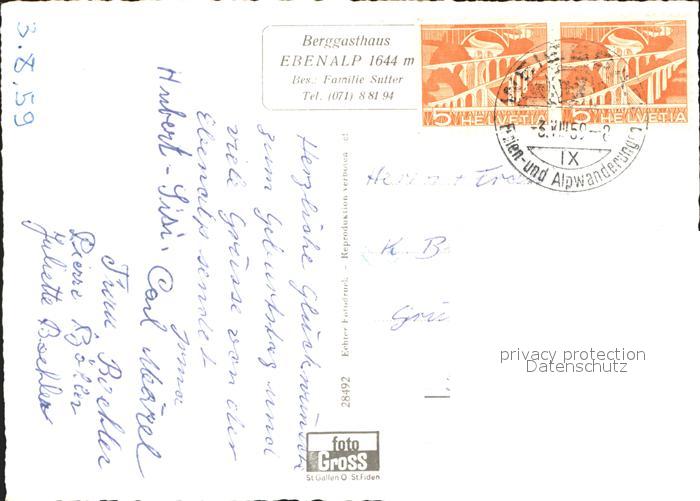 3.8.59
Berggasthaus
EBENALP 1644 m
Bes.: Familie Sutter
Tel. (071) 8 81 94
5 HELVETIA
5 HELVETIA
-3.VIII.59--2
IX
Ferien- und Alpwanderungen
Herzliche Glückwünsche
zum Geburtstag und
viele Grüsse von der
Ebenalp sendet
Irma
Hubert - Sisi. Carl Märel
Frau Boehler
Pierre
Juliette Boehler
Herr + Fr
K. B
Grü
28492 Echter Fotodruck - Reproduktion verboten
foto
Gross
St.Gallen O St.Fiden
privacy protection
Datenschutz